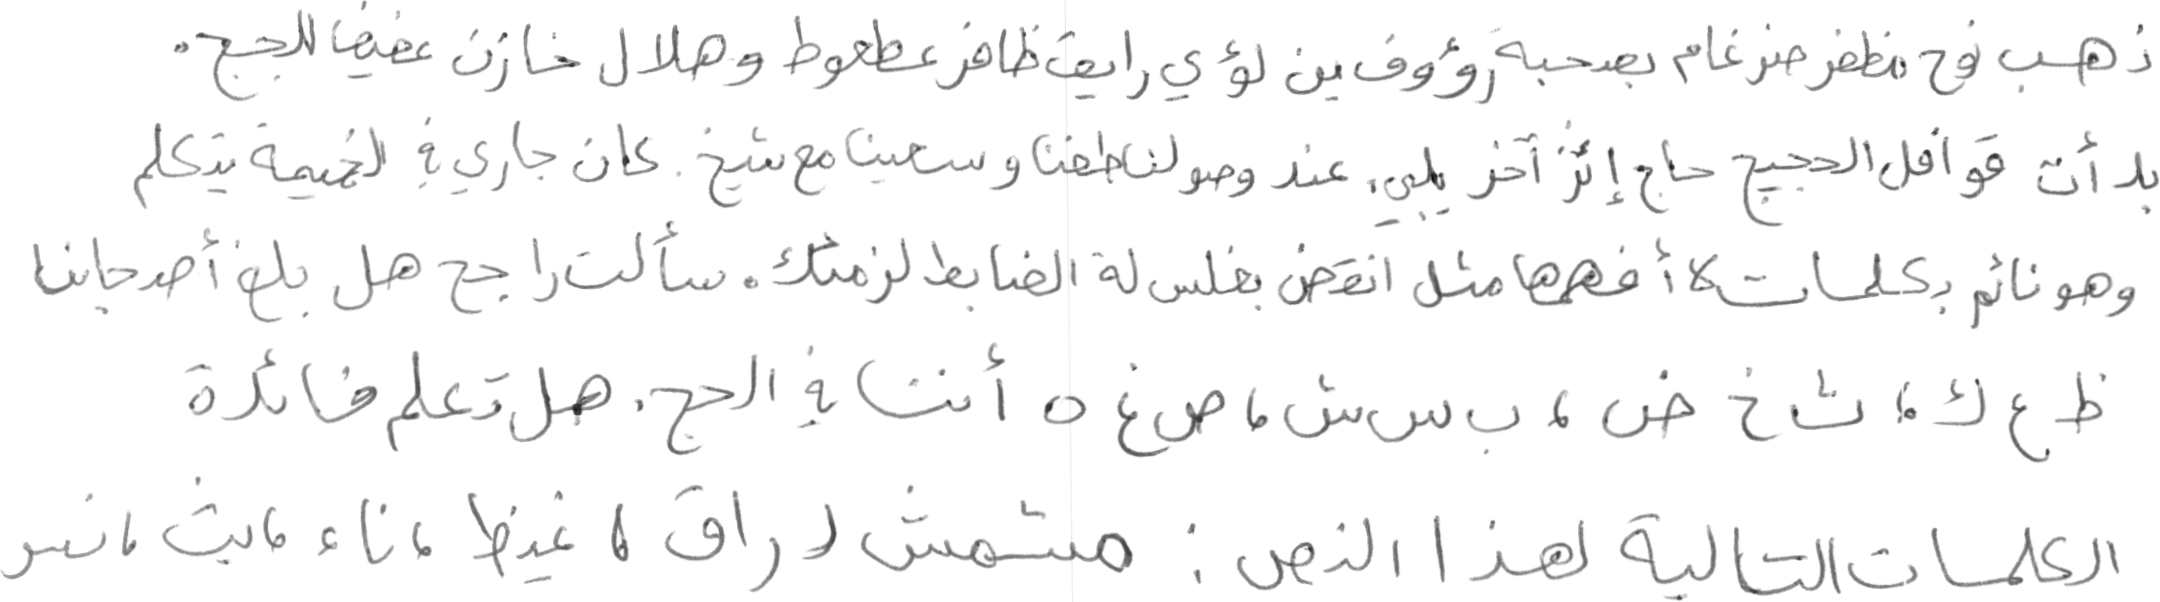 ذهب نوح مظفر ضرغام بصحبة رؤوف بن لؤي رايق ظافر عطعوط وهلال خازن عفيفا للحج.
بدأت قوافل الحجيج حاج إثر آخر يلبي، عند وصولنا طفنا وسعينا مع شيخ. كان جاري في الخيمة يتكلم
وهو نائم بكلمات لا أفهمها مثل انقض بغلس لة الضابط لزمئك. سألت راجح هل بلغ أصحابنا
ظ ع ك، ث خ ض، ب س ش، ص غ ه أننا في الحج. هل تعلم فائدة
الكلمات التالية لهذا النص: مشمش، راق، غيظ، ناء، بث، نس